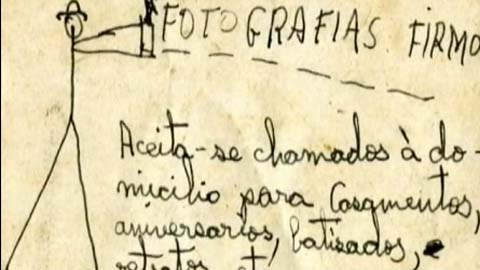 FOTOGRAFIAS FIRMO
Aceita-se chamados à do-
micilio para Casamentos,
aniversarios, batisados, e
retratos